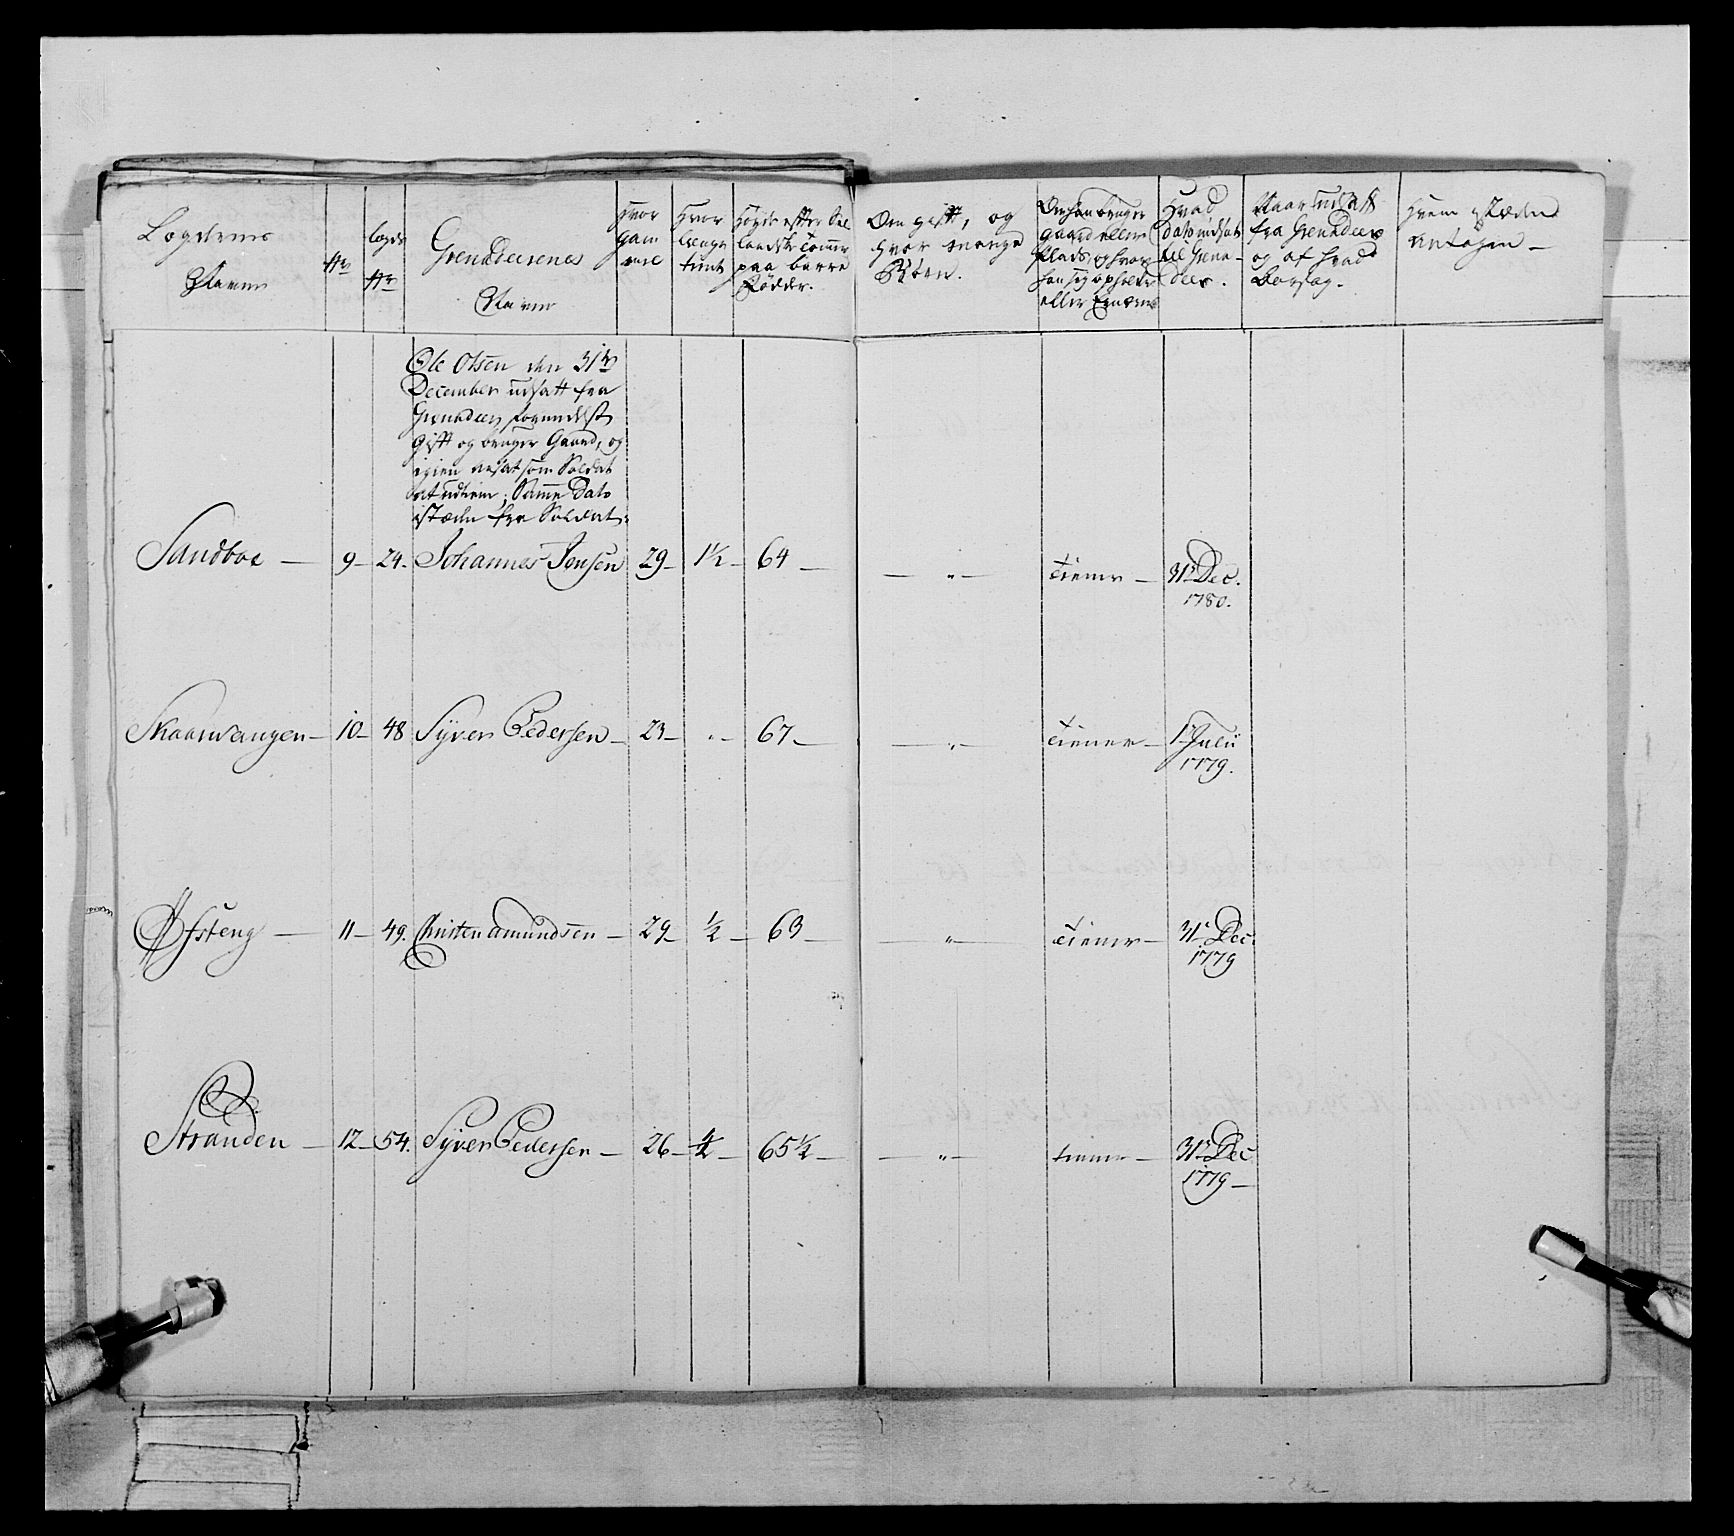 Lægdernes Navne
No
Lægds No
Grenadeerenes Navne
Hvor gam mel
Hvor længe tient
Høyde efter Sællandske Tommer paa barre Fødder.
Om gift, og hvor mange Børn.
Om han bruger Gaard eller Plads, og hvor han sig opholder eller Ernærer
Hvad dato indsat til Grenadeer.
Naar udsatt fra Grenadeer og af hvad Aarsag.
Hvem i stæden Antagen —
Ole Olsen den 31te
December udsatt fra
Grenadeer formedelst
gift og bruger Gaard, og
igien ansat som Soldat
at udtiene, Samme Dato
i stæden fra Soldat:
Sandboe — 9 — 24 — Johannes Jonsen 29 — 1½ — 64 — — " — Tiener — 31te Dec. 1780.
Skaarvangen — 10 — 48 Syver Pedersen — 23 — " — 67 — — " — Tiener — 1te Julii 1779.
Øfsteng — 11 — 49. Christen Amundsen — 29 — ½ — 63 — — " — Tiener — 31te Dec. 1779
Stranden — 12 — 54. Syver Pedersen — 26 — ½ — 65½ — — " — tiener — 31te Dec 1779 —